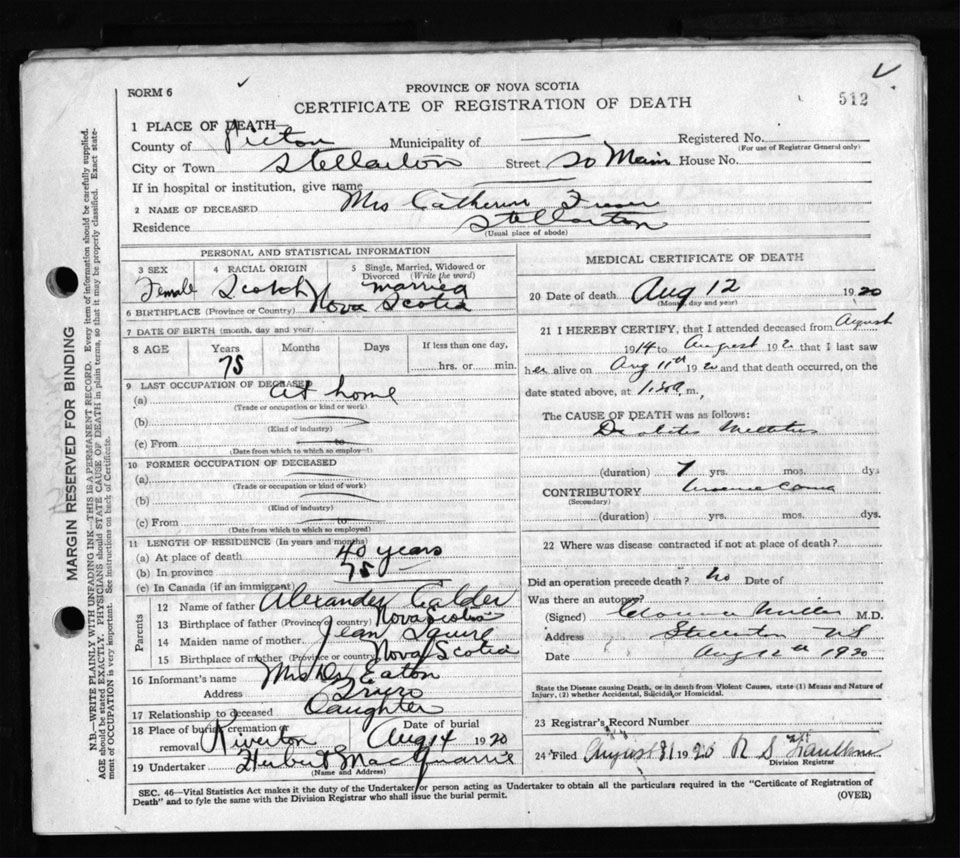 FORM 6
PROVINCE OF NOVA SCOTIA
CERTIFICATE OF REGISTRATION OF DEATH
512
1 PLACE OF DEATH—
County of Pictou Municipality of Registered No.
(For use of Registrar General only)
City or Town Stellarton Street So Main House No.
If in hospital or institution, give name
2 NAME OF DECEASED Mrs Catherine Fraser
Residence Stellarton
(Usual place of abode)
PERSONAL AND STATISTICAL INFORMATION
3 SEX Female
4 RACIAL ORIGIN Scotch
5 Single, Married, Widowed or Divorced (Write the word) married
6 BIRTHPLACE (Province or Country) Nova Scotia
7 DATE OF BIRTH (month, day and year)
8 AGE Years Months Days If less than one day,
75 hrs. or min.
9 LAST OCCUPATION OF DECEASED
(a) At home
(Trade or occupation or kind of work)
(b)
(Kind of industry)
(c) From to
(Date from which to which so employed)
10 FORMER OCCUPATION OF DECEASED
(a)
(Trade or occupation or kind of work)
(b)
(Kind of industry)
(c) From to
(Date from which to which so employed)
11 LENGTH OF RESIDENCE (In years and months)
(a) At place of death 40 years
(b) In province 75
(c) In Canada (if an immigrant)
Parents
12 Name of father Alexander Calder
13 Birthplace of father (Province or country) Nova Scotia
14 Maiden name of mother Jean Squire
15 Birthplace of mother (Province or country) Nova Scotia
16 Informant's name Mrs Eaton
Address Truro
17 Relationship to deceased Daughter
18 Place of burial cremation or removal Riverton Date of burial Aug 14 1920
19 Undertaker Herbert MacQuarrie
(Name and Address)
MEDICAL CERTIFICATE OF DEATH
20 Date of death Aug 12 1920
(Month, day and year)
21 I HEREBY CERTIFY, that I attended deceased from August
1914 to August 1920 that I last saw
her alive on Aug 11th 1920 and that death occurred, on the
date stated above, at m.,
The CAUSE OF DEATH was as follows:
Diabetes Mellitus
(duration) 7 yrs. mos. dys
CONTRIBUTORY Uraemic Coma
(Secondary)
(duration) yrs. mos. dys.
22 Where was disease contracted if not at place of death?
Did an operation precede death? No Date of
Was there an autopsy?
(Signed) Clarence Miller M.D.
Address Stellarton N.S.
Date Aug 12th 1920
State the Disease causing Death, or in death from Violent Causes, state (1) Means and Nature of
Injury, (2) whether Accidental, Suicidal or Homicidal.
23 Registrar's Record Number
24 Filed August 31 1920 R S
Division Registrar
SEC. 46—Vital Statistics Act makes it the duty of the Undertaker or person acting as Undertaker to obtain all the particulars required in the "Certificate of Registration of
Death" and to fyle the same with the Division Registrar who shall issue the burial permit.
(OVER)
MARGIN RESERVED FOR BINDING
N.B.—WRITE PLAINLY WITH UNFADING INK—THIS IS A PERMANENT RECORD. Every item of information should be carefully supplied.
AGE should be stated EXACTLY. PHYSICIANS should STATE CAUSE OF DEATH in plain terms, so that it may be properly classified. Exact state-
ment of OCCUPATION is very important. See instructions on back of Certificate.